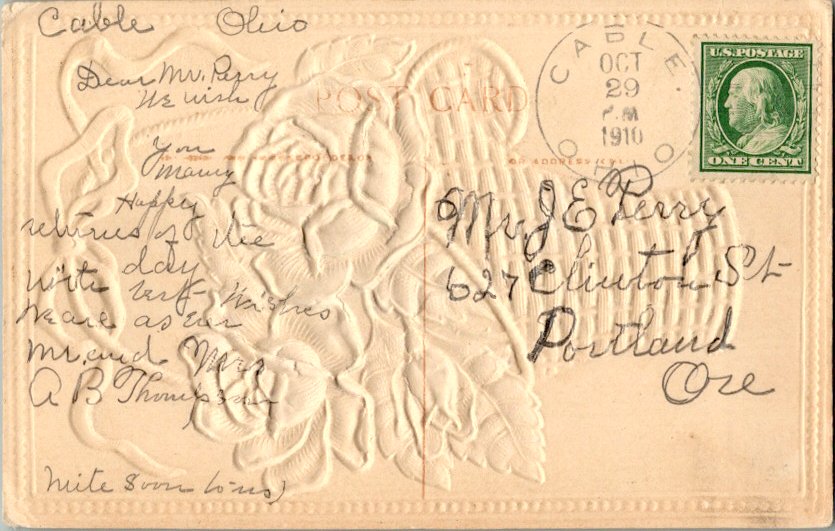 Cable Ohio
Dear Mr. Perry
We wish
You
Many
Happy
returns of the
day
with best wishes
We are as ever
Mr. and Mrs
A B Thompson
Write Soon to us)
POST CARD
CABLE.
OHIO
OCT
29
P.M
1910
U.S. POSTAGE
ONE CENT
Mr. J E Perry
627 Clinton St
Portland
Ore